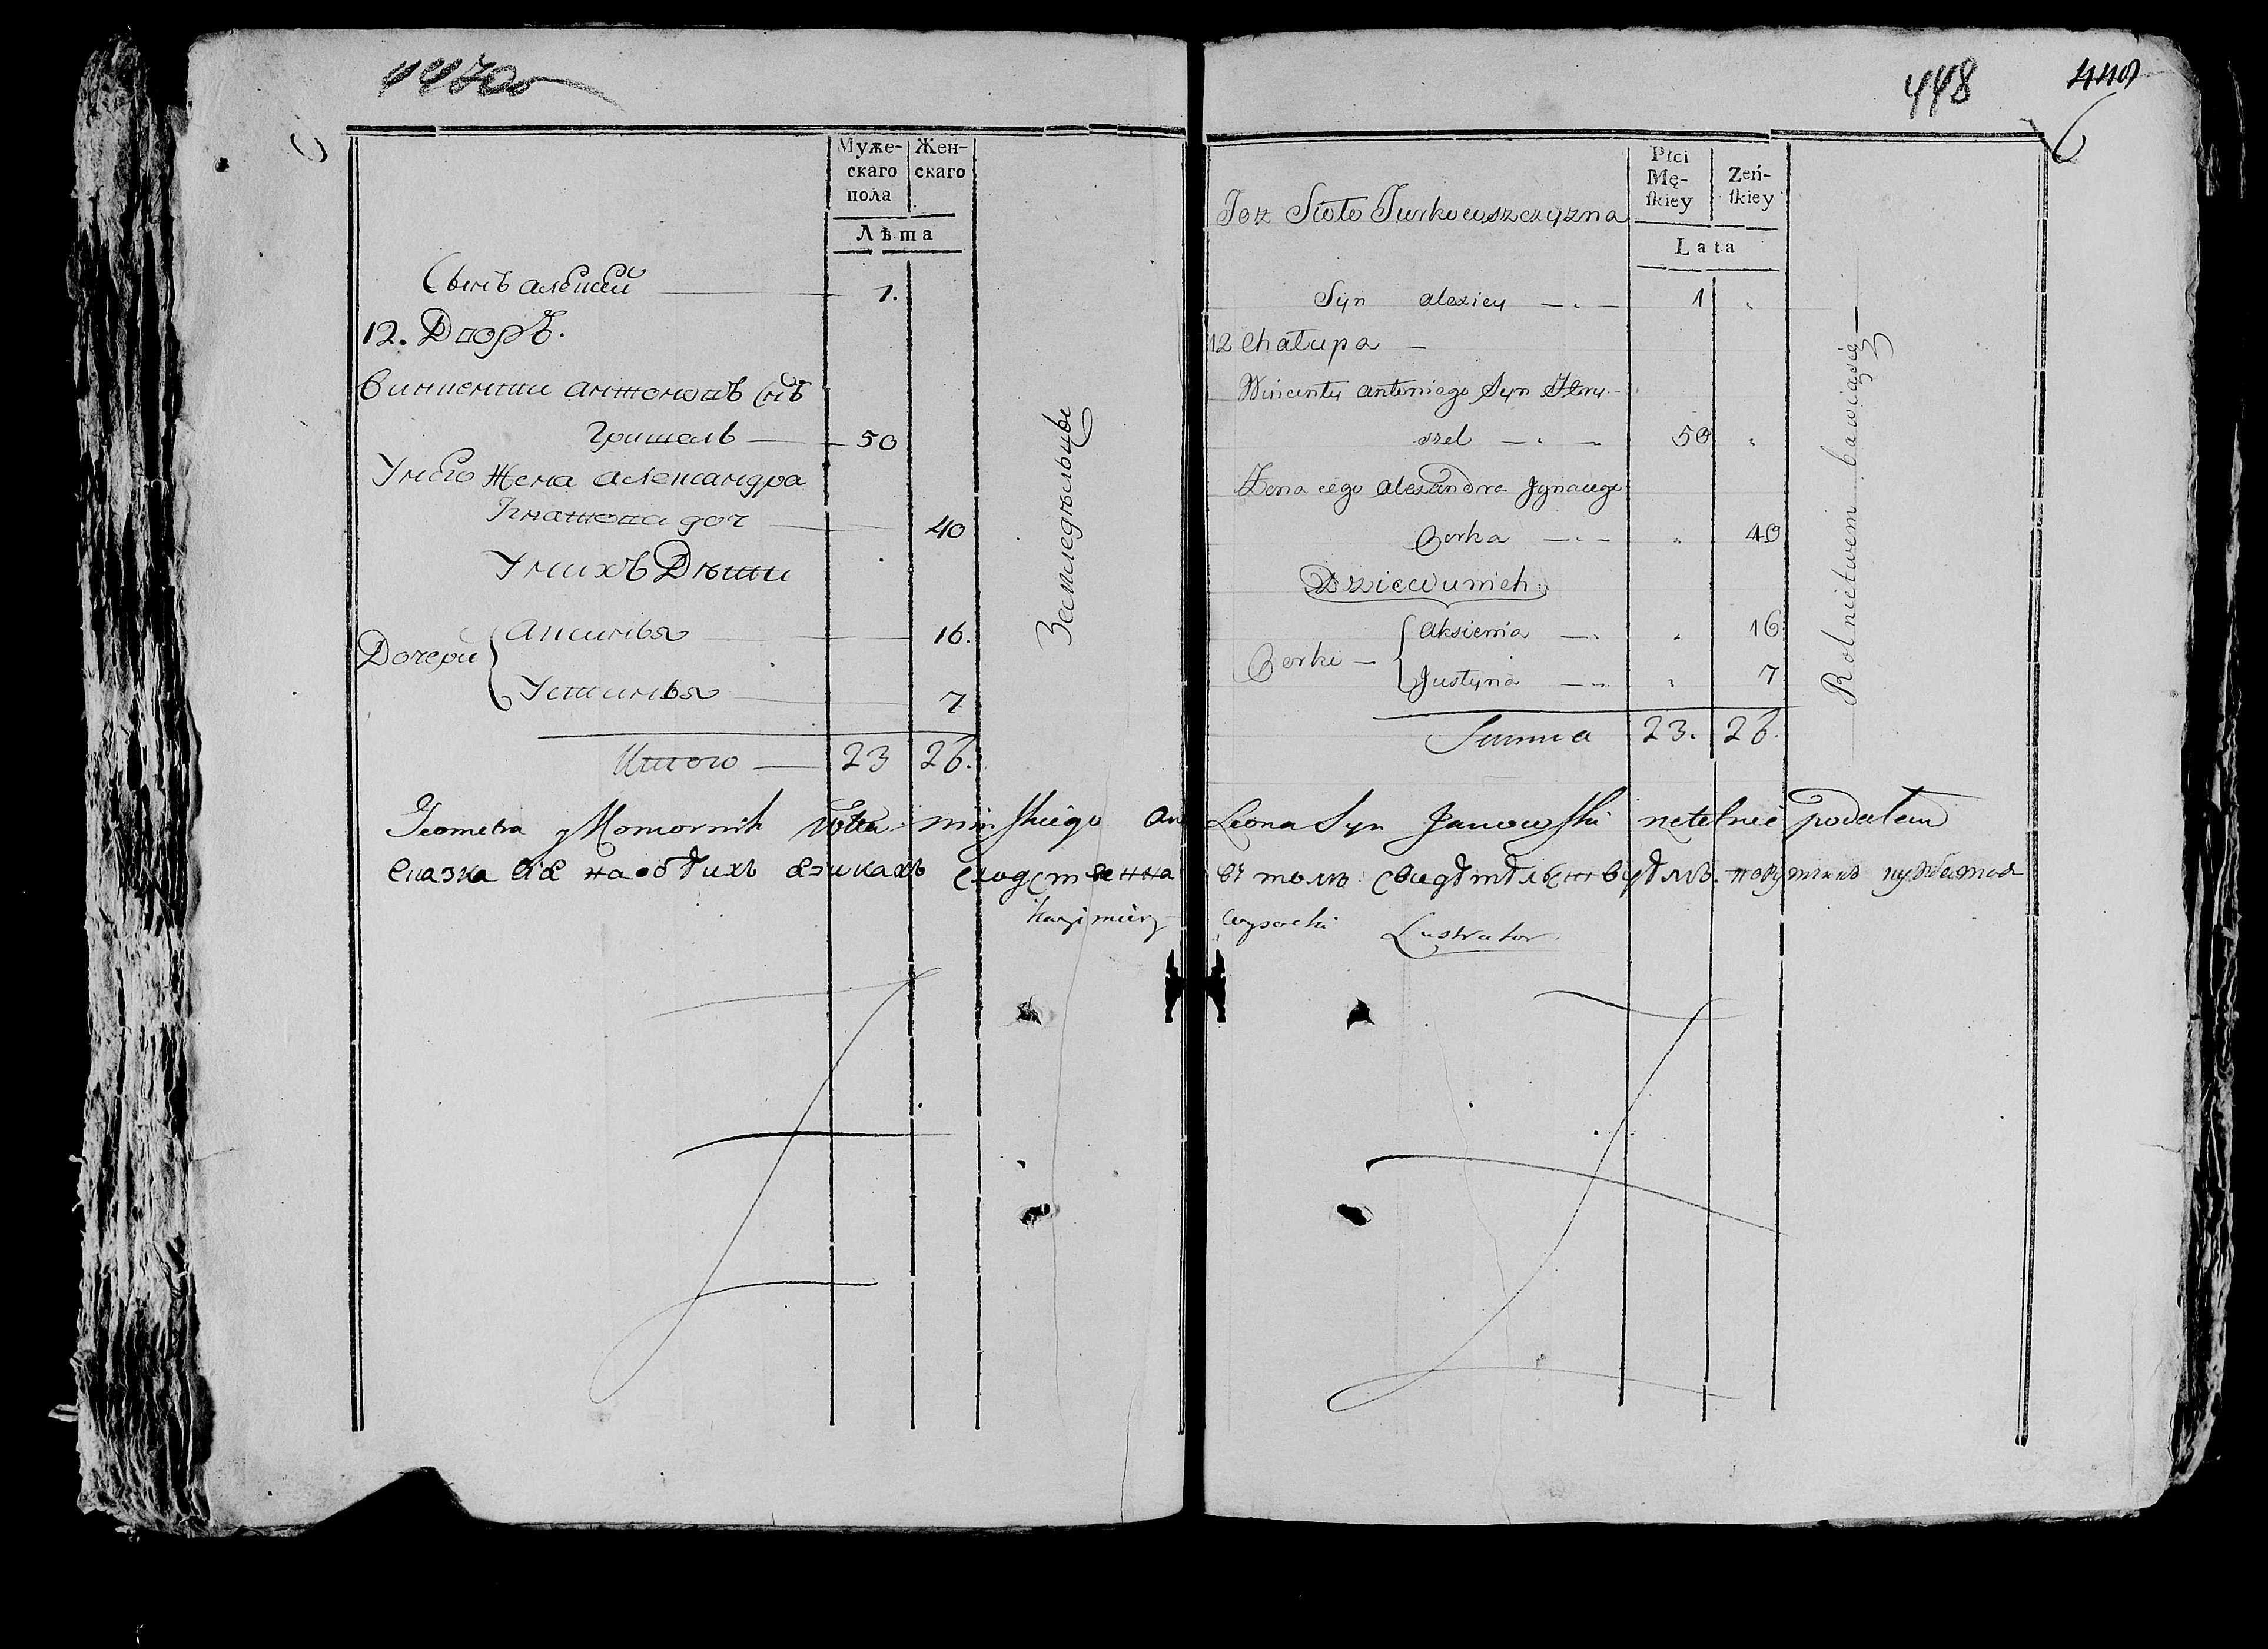 Муже-
скаго
пола
Жен-
скаго
Лѣта
Сынъ алеѯей 1.
12. Дворъ.
Винцентий антоновъ Снъ
Гришель 50
Унего Жена александра
Игнатова доч 40
Унихъ Дѣти
Дочери
Аксинья 16.
Устинья 7
Итого 23 26.
Земледѣльцы
448
449
6
Toż Sioło Jurkowszczyzna
Płci
Mę-
ſkiey
Zeń-
ſkiey
Lata
Syn alexiey 1
12 Chałupa
Wincenty antoniego Syn Hry-
szel 50
Zona iego alexandra Jgnacego
Corka 40
Dzieci u nich
Corki
Aksienia 16
Justyna 7
Summa 23. 26.
Rolnictwem bawią się
Geometra y Komornik Wttu minſkiego An Leona Syn Janowſki rzetelnie podałem
Сказка сія на обѣихъ языкахъ сходственна въ томъ свидѣтельствуемъ
Kazimierz Wysocki Lustrator